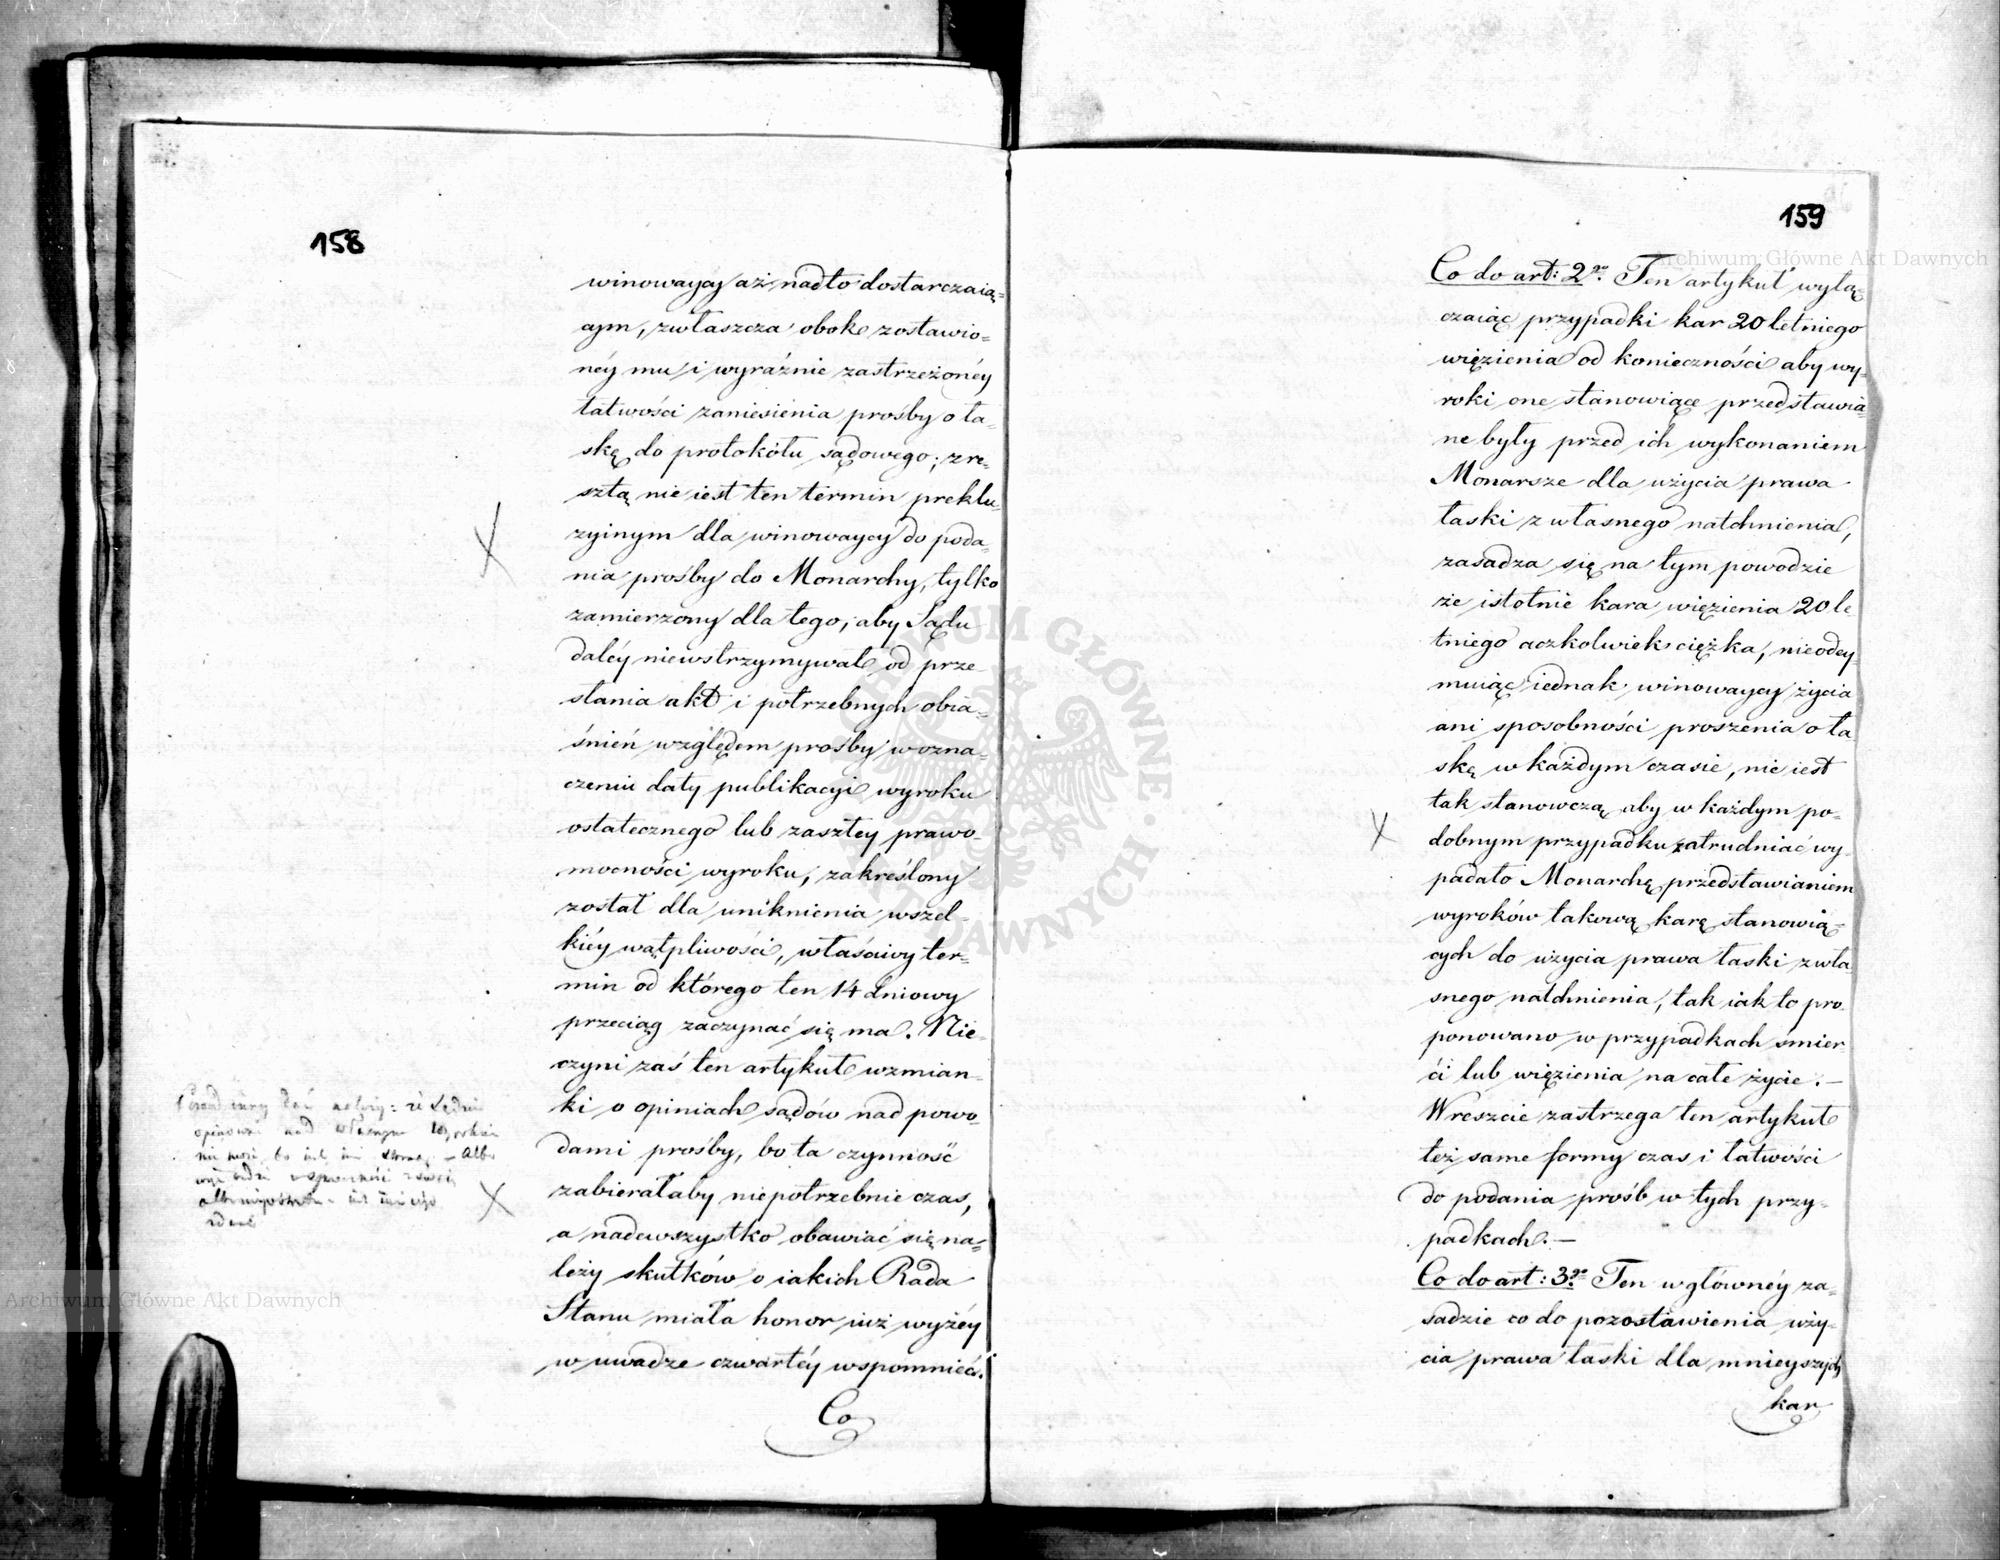 158
winowaycy aż nadto dostarczaią=
cym, zwłaszcza obok zostawio=
néy mu i wyraźnie zastrzeżonéy
łatwości zaniesienia prośby o ła=
skę do protokółu sądowego; zre=
sztą nie iest ten termin preklu=
zyinym dla winowaycy do poda=
nia prośby do Monarchy, tylko
zamierzony dla tego, aby Sądu
daléy niewstrzymywał od prze
słania akt i potrzebnych obia=
śnień względem prośby w ozna=
czeniu daty publikacyi wyroku
ostatecznego lub zaszłey prawo=
mocności wyroku, zakreślony
został dla uniknienia wszel=
kiéy wątpliwości, właściwy ter=
min od którego ten 14 dniowy
przeciąg zaczynać się ma. Nie=
czyni zaś ten artykuł wzmian=
ki o opiniach sądów nad powo
dami prośby, bo ta czynność
zabierałaby niepotrzebnie czas,
a nadewszystko obawiać się na=
leży skutków o iakich Rada
Stanu miała honor iuż wyżéy
w uwadze czwartéy wspomnieć.
Co
159
Co do art: 2go. Ten artykuł wyłą=
czaiąc przypadki kar 20 letniego
więzienia od konieczności aby wy=
roki one stanowiące przedstawia=
ne były przed ich wykonaniem
Monarsze dla użycia prawa
łaski z własnego natchnienia,
zasadza się na tym powodzie
że istotnie kara więzienia 20 le
tniego aczkolwiek ciężka, nieodey=
muiąc iednak winowaycy życia
ani sposobności proszenia o ła
skę w każdym czasie, nie iest
tak stanowczą aby w każdym po=
dobnym przypadku zatrudniać wy=
padało Monarchę przedstawianiem
wyroków takową karę stanowią=
cych do użycia prawa łaski z wła
snego natchnienia, tak iak to pro
ponowano w przypadkach śmier=
ci lub więzienia na całe życie. —
Wreszcie zastrzega ten artykuł
też same formy czas i łatwości
do podania prośb w tych przy=
padkach. —
Co do art: 3go. Ten w głównéy za=
sadzie co do pozostawienia uży=
cia prawa łaski dla mnieyszych
kar
Archiwum Główne Akt Dawnych
Archiwum Główne Akt Dawnych